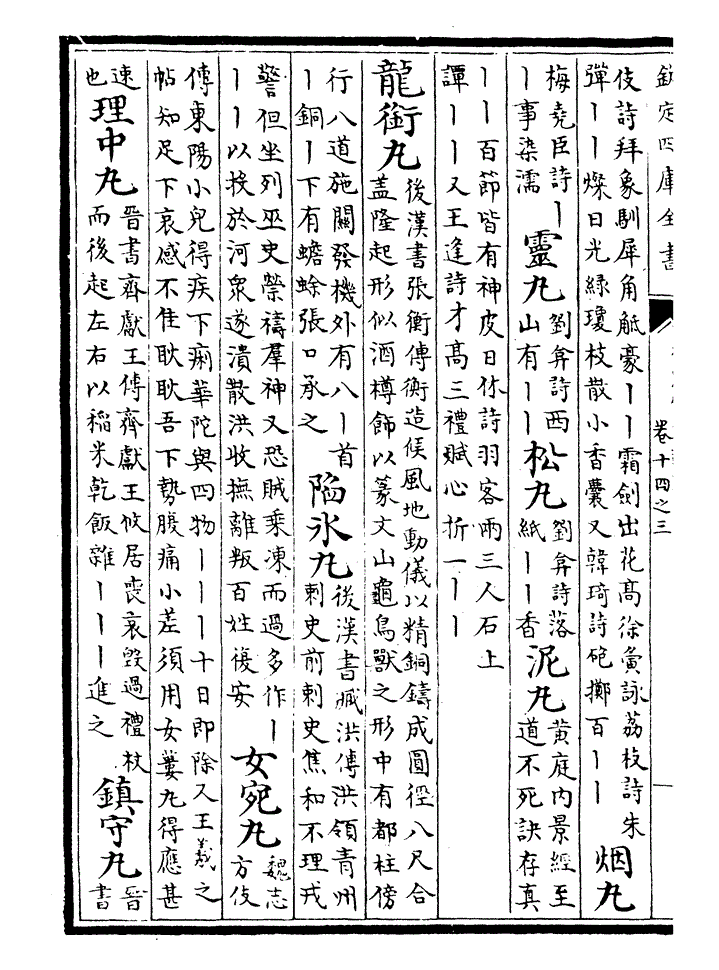 欽定四庫全書
卷十四之三
伎詩拜象馴犀角觝豪丨丨霜劍出花高徐夤詠荔枝詩朱
彈丨丨燦日光綠瓊枝散小香囊又韓琦詩砲擲百丨丨
烟丸
梅堯臣詩丨
丨事染濡
靈丸
劉弇詩西
山有丨丨
松丸
劉弇詩落
紙丨丨香
泥丸
黄庭内景經至
道不死訣存真
丨丨百節皆有神皮日休詩羽客兩三人石上
譚丨丨又王逢詩才高三禮賦心折一丨丨
龍銜丸
後漢書張衡傳衡造候風地動儀以精銅鑄成圓徑八尺合
蓋隆起形似酒樽飾以篆文山龜鳥獸之形中有都柱傍
行八道施關發機外有八丨首
丨銅丨下有蟾蜍張口承之
陷氷丸
後漢書臧洪傳洪領青州
刺史前刺史焦和不理戎
警但坐列巫史禜禱羣神又恐賊乘凍而過多作丨
丨丨以投於河衆遂潰散洪收撫離叛百姓復安
女宛丸
魏志
方伎
傳東陽小兒得疾下痢華陀與四物丨丨丨十日即除又王羲之
帖知足下哀感不佳耿耿吾下勢腹痛小差須用女蔞丸得應甚
速
也
理中丸
晉書齊獻王傳齊獻王攸居喪哀毁過禮杖
而後起左右以稻米乾飯雜丨丨丨進之
鎮守丸
晉
書